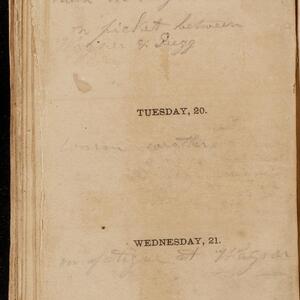 on picket between
& Gregg
TUESDAY, 20.
warm weather
WEDNESDAY, 21.
on fatigue at Wagner